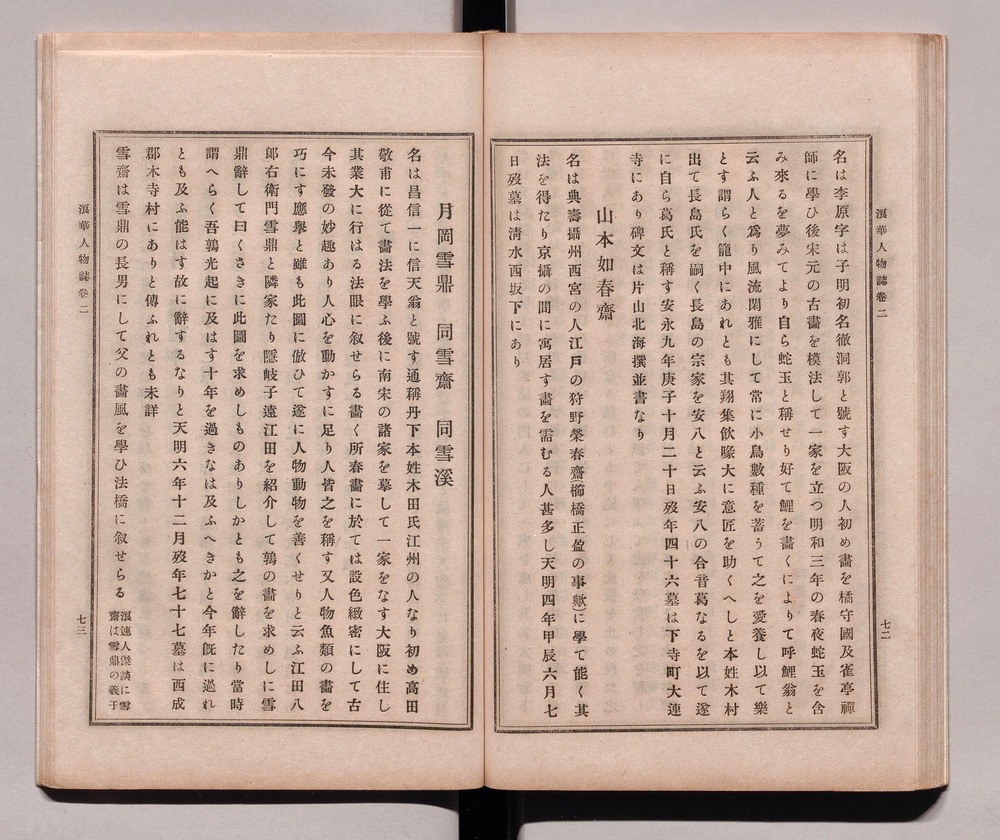 浪華人物誌卷二
名は李原字は子明初名徹洞郭と號す大阪の人初め畫を橘守國及雀亭禪
師に學ひ後宋元の古畫を模法して一家を立つ明和三年の春夜蛇玉を含
み來るを夢みてより自ら蛇玉と稱せり好て鯉を畫くにより て呼鯉翁と
云ふ人と爲り風流閑雅にして常に小鳥數種を蓄うて之を愛養し以て樂
とす謂らく籠中にあれとも其翔集飮啄大に意匠を助くへしと本姓木村
出て長島氏を嗣く長島の宗家を安八と云ふ安八の合音葛なるを以て遂
に自ら葛氏と稱す安永九年庚子十月二十日歿年四十六墓は下寺町大連
寺にあり碑文は片山北海撰並書なり
山本如春齋
名は典壽攝州西宮の人江戸の狩野榮春齋櫛橋正盈の事歟)に學て能く其
法を得たり京攝の間に寓居す畫を需むる人甚多し天明四年甲辰六月七
日歿墓は淸水西坂下にあり
七二
月岡雪鼎 同雪齋 同雪溪
名は昌信一に信天翁と號す通稱丹下本姓木田氏江州の人なり初め高田
敬甫に從て畫法を學ふ後に南宋の諸家を摹して一家をなす大阪に住し
其業大に行はる法眼に叙せらる畫く所春畫に於ては設色緻密にして古
今未發の妙趣あり人心を動かすに足り人皆之を稱す又人物魚類の畫を
巧にす應擧と雖も此圖に倣ひて遂に人物動物を善くせりと云ふ江田八
郎右衛門雪鼎と隣家たり隱岐子遠江田を紹介して鶉の畫を求めしに雪
鼎辭して曰くさきに此圖を求めしものありしかとも之を辭したり當時
謂へらく吾鶉光起に及はす十年を過きなは及ふへきかと今年旣に過れ
とも及ふ能はす故に辭するなりと天明六年十二月歿年七十七墓は西成
郡木寺村にありと傳ふれとも未詳
雪齋は雪鼎の長男にして父の畫風を學ひ法橋に叙せらる
浪速人傑談に雪
齋は雪鼎の義子
浪華人物誌卷二
七三